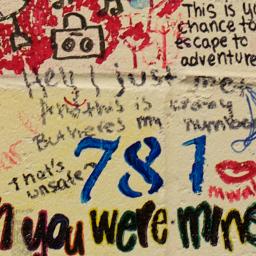 This is yo
chance to
escape to
adventure
Hey, I just met
And this is crazy
But heres my number
781
That's
unsafe
mwah
n you were mine